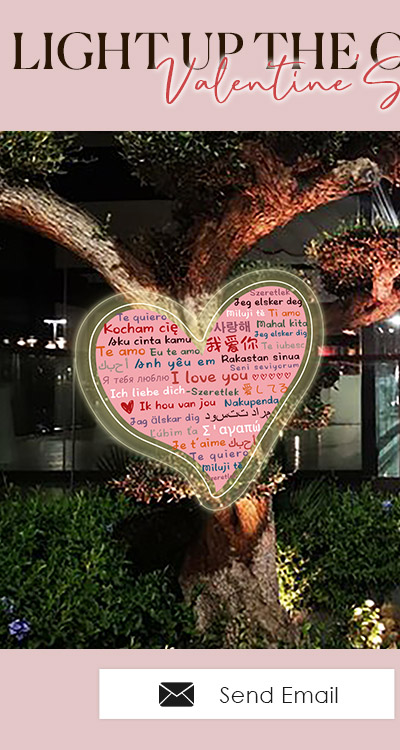 LIGHT UP THE
Valentine'S
Szeretlek
Jeg elsker deg
Te quiero
Miluji tě Ti amo
Kocham cię 사랑해 Mahal kita
Aku cinta kamu Jeg elsker dig
Te amo Eu te amo 我爱你 Te iubesc
أحبك Anh yêu em Rakastan sinua
Seni seviyorum
Я тебя люблю I love you ♡♡♡♡♡
Ich liebe dich Szeretlek 愛してる
Ik hou van jou Nakupenda
Jag älskar dig
Σ'αγαπώ
Je t'aime أحبك
Te quiero
Miluji tě
Send Email